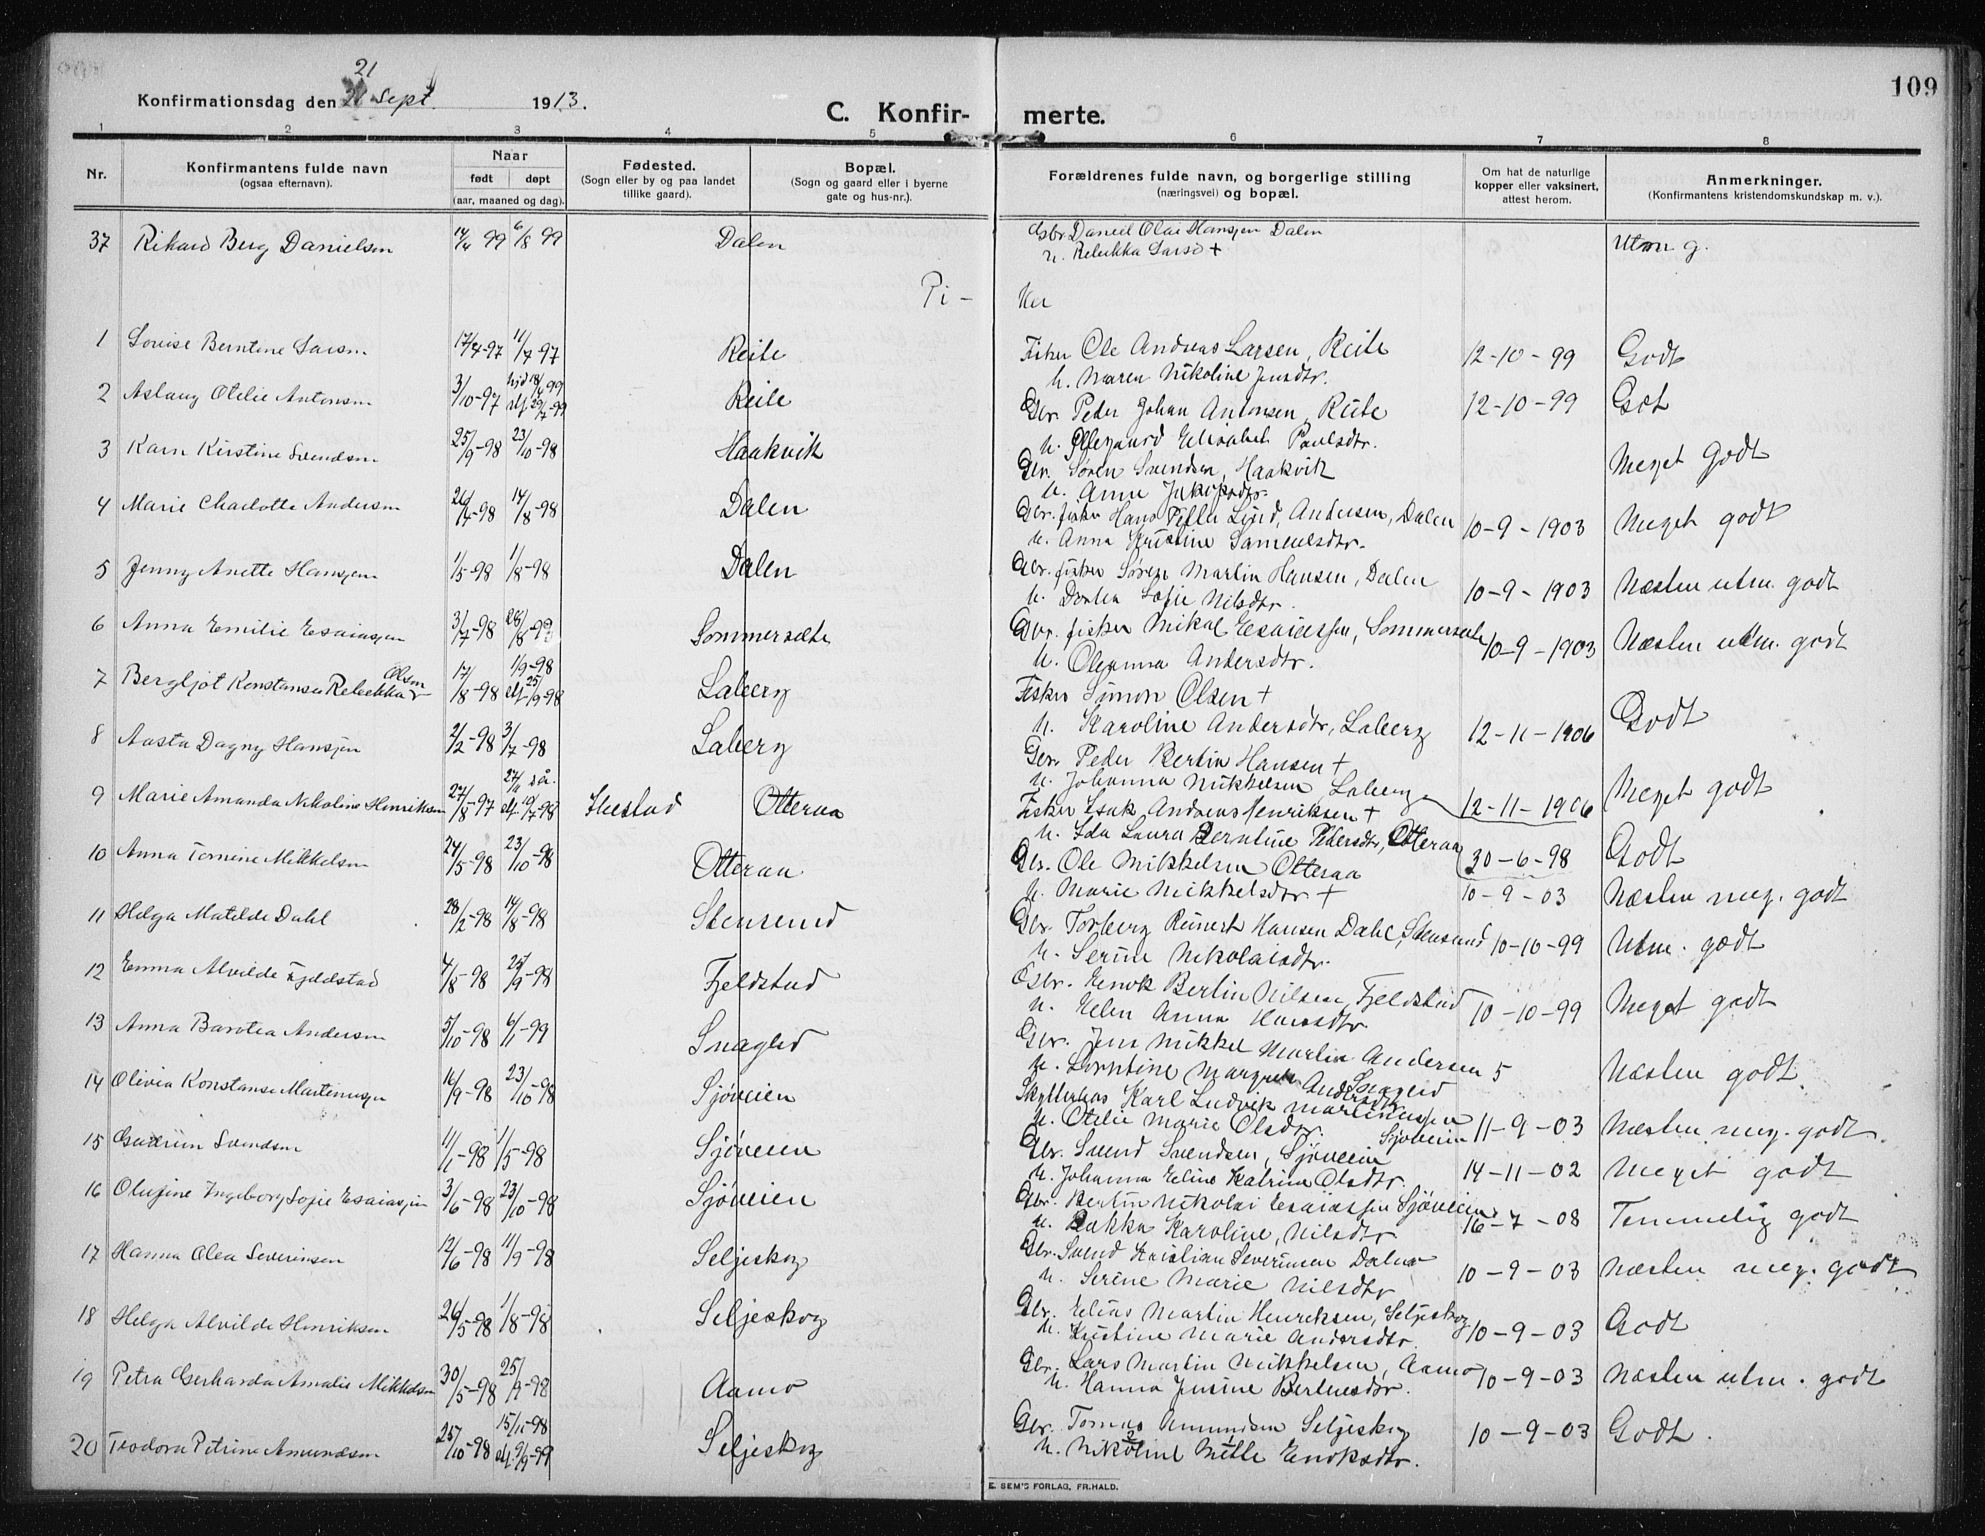 21
Konfirmationsdag den 21 Sept. 1913.
C. Konfir- merte.
109
1 2 3 4 5 6 7 8
Nr.
Konfirmantens fulde navn
(ogsaa efternavn).
Naar
født døpt
(aar, maaned og dag).
Fødested.
(Sogn eller by og paa landet
tillike gaard).
Bopæl.
(Sogn og gaard eller i byerne
gate og hus-nr.).
Forældrenes fulde navn, og borgerlige stilling
(næringsvei) og bopæl.
Om hat de naturlige
kopper eller vaksinert,
attest herom.
Anmerkninger.
(Konfirmantens kristendomskundskap m. v.).
37 Rikard Berg Danielsen 14/4 99 6/8 99 Dalen Gbr Daniel Olai Hansen Dalen Utm g.
u. Rebekka Larsd +
Pi - ker
1 Lovise Berntine Larsen 17/4-97 11/7-97 Reite Fisker Ole Andreas Larsen, Reite 12-10-99 Godt
u. Maren Nikoline Jensdtr.
2 Aslaug Otelie Antonsen 3/10-97 Reite Gbr. Peder Johan Antonsen, Reite 12-10-99 Godt
u. Ollegaard Elisabet Paulsdtr.
3 Karn Kirstine Svendsen 25/9-98 23/10-98 Haakvik Gbr. Søren Svendsen, Haakvik Meget Godt
u. Anne Jakopsdtr.
4 Marie Charlotte Andersen 26/4-98 14/8-98 Dalen Gbr. fisker Hans Lind, Andersen, Dalen 10-9-1903 Meget godt
u. Anna Kristine Samuelsdtr.
5 Jenny Anette Hansen 1/5-98 1/8-98 Dalen Gbr. fisker Søren Martin Hansen, Dalen 10-9-1903 Næsten utm. godt
u. Dortea Sofie Nilsdtr.
6 Anna Emilie Esaiassen 3/7-98 28/8-98 Sommersæte Gbr. fisker Mikal Esaiassen, Sommersæte 10-9-1903 Næsten utm. godt
u. Oleanna Andersdtr.
7 Bergljot Konstanse Rebekka Olsen 17/8-98 1/9-98 25/9-98 Laberg Fisker Simon Olsen +
u. Karoline Andersdtr, Laberg 12-11-1906 Godt
8 Aasta Dagny Hansen 2/2-98 3/7-98 Laberg Gbr. Peder Bertin Hansen +
u. Johanna Mikkelsen Laberg 12-11-1906 Meget godt
9 Marie Amanda Nikoline Henriksen 27/8-97 Otteraa Fisker Isak Andreas Henriksen +
u. Ida Laura Berntine Pedersdtr, Otteraa 30-6-98 Godt
10 Anna Tomine Mikkelsen 24/5-98 23/10-98 Otteraa Gbr. Ole Mikkelsen Otteraa
u. Marie Mikkelsdtr + 10-9-03 Næsten meg. godt
11 Helga Matilde Dahl 28/2-98 14/8-98 Stensund Gbr. Torberg Reinert Hansen Dahl, Stensund 10-10-99 Utm. godt
u. Serine Nikolaisdtr.
12 Emma Alvilde Fjeldstad 4/8-98 25/9-98 Fjeldstad Gbr. Enok Bertin Nilsen Fjeldstad 10-10-99 Meget godt
u. Elen Anna Hansdtr.
13 Anna Barotea Andersen 5/10-98 6/1-99 Snaglid Gbr. Jens Mikkel Martin Andersen 5 Næsten godt
u. Lorntine Margrete Andersdtr Snaglid
14 Olivia Konstanse Martinusen 16/9-98 23/10-98 Sjøveien Karl Ludvik Martinussen
u. Otelie Marie Olsdtr. Sjøveien 11-9-03 Næsten meg. godt.
15 Gudrun Svendsen 11/1-98 1/5-98 Sjøveien Gbr. Svend Svendsen, Sjøveien 14-11-02 Meget godt
u. Johanna Eline Katrine Olsdtr.
16 Olufine Ingeborg Sofie Esaiassen 3/6-98 23/10-98 Sjøveien Gbr. Bertin Nikolai Esaiassen Sjøveien 16-7-08 Temmelig godt
u. Bakka Karoline, Nilsdtr
17 Hanna Olea Severinsen 12/6-98 11/9-98 Seljeskog Gbr. Svend Kristian Severinsen Dalmo
u. Serine Marie Nilsdtr 10-9-03 Næsten meg. godt
18 Helga Alvilde Henriksen 26/5-98 1/8-98 Seljeskog Gbr. Elias Martin Henriksen, Seljeskog 10-9-03 Godt
u. Kristine Marie Andersdtr.
19 Petra Gerharda Amalie Mikkelsen 30/5-98 25/9-98 Aamo Gbr. Lars Martin Mikkelsen, Aamo 10-9-03 Næsten utm. godt
u. Hanna Jensine Bertinesdtr.
20 Teodora Petrine Amundsen 25/10-98 15/11-98 Seljeskog Gbr. Tomas Amundsen Seljeskog 10-9-03 Godt.
u. Nikoline Mette Enoksdtr.
E. SEM'S FORLAG, FR.HALD.